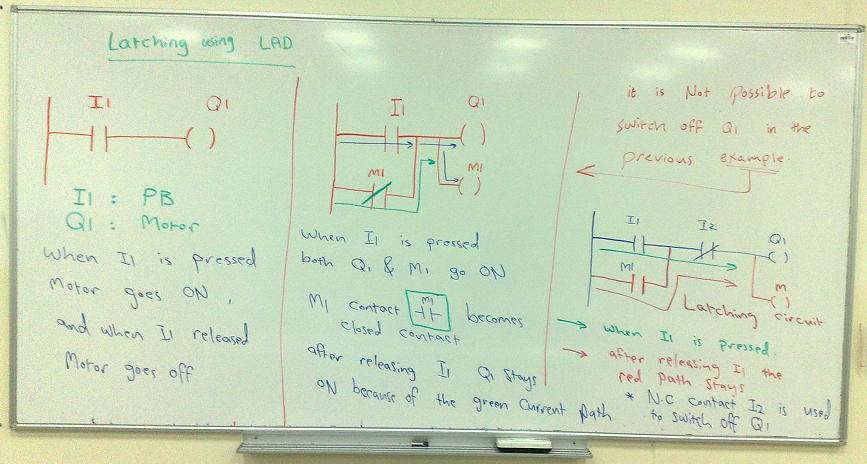 Latching using LAD
I1 Q1
I1 : PB
Q1 : Motor
When I1 is pressed
Motor goes ON,
and when I1 released
Motor goes off
I1 Q1
M1 M1
When I1 is pressed
both Q1 & M1 go ON
M1 contact M1 becomes
closed contact
after releasing I1 Q1 stays
ON because of the green current path
it is Not possible to
switch off Q1 in the
previous example.
I1 I2 Q1
M1 M
Latching circuit
→ when I1 is pressed.
→ after releasing I1 the
red path stays
* N.C contact I2 is used
to switch off Q1